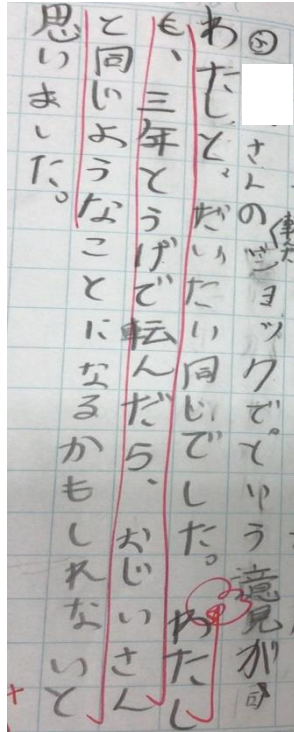 さんのショックで。という意見が
わたしと、だいたい同じでした。わたし
も、三年とうげで転んだら、おじいさん
と同じようなことになるかもしれないと
思いました。